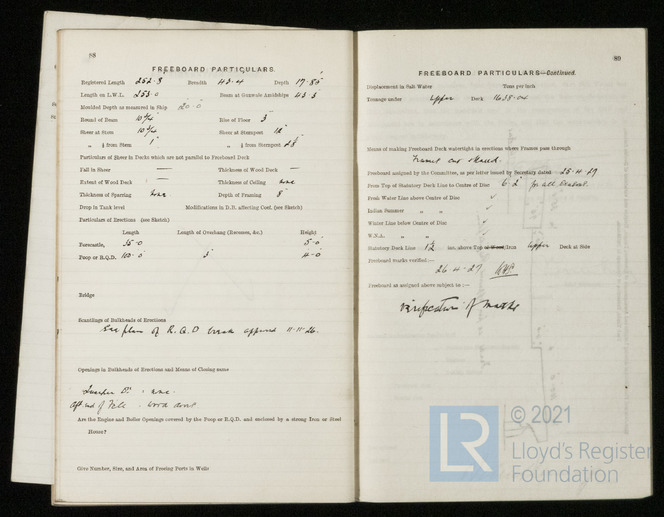 88
FREEBOARD PARTICULARS.
Registered Length 252.8 Breadth 43.4 Depth 17.85
Length on L.W.L. 253.0 Beam at Gunwale Amidships 43.5
Moulded Depth as measured in Ship 20-0
Round of Beam 10¼ Rise of Floor 3
Sheer at Stem Sheer at Sternpost
" ⅛ from Stem " ⅛ from Sternpost
Particulars of Sheer in Decks which are not parallel to Freeboard Deck
Fall in Sheer — Thickness of Wood Deck —
Extent of Wood Deck Thickness of Ceiling none
Thickness of Sparring none Depth of Framing 8
Drop in Tank level Modifications in D.B. affecting Coef. (see Sketch)
Particulars of Erections (see Sketch)
Length Length of Overhang (Recesses, &c.) Height
Forecastle, 5-0
Poop or R.Q.D. 100.0 3 4-0
Bridge
Scantlings of Bulkheads of Erections
See plan of R.Q.D break approved 11.11.26.
Openings in Bulkheads of Erections and Means of Closing same
none
Aft end of Fcle - wood door
Are the Engine and Boiler Openings covered by the Poop or R.Q.D. and enclosed by a strong Iron or Steel
House?
Give Number, Size, and Area of Freeing Ports in Wells
89
FREEBOARD PARTICULARS—Continued.
Displacement in Salt Water Tons per inch
Tonnage under Upper Deck 1638.04
Means of making Freeboard Deck watertight in erections where Frames pass through
Frames cut
Freeboard assigned by the Committee, as per letter issued by Secretary dated 25-4-27
From Top of Statutory Deck Line to Centre of Disc 6-2 for all
Fresh Water Line above Centre of Disc
Indian Summer " "
Winter Line below Centre of Disc
W.N.A. " "
Statutory Deck Line 1½ ins. above Top of Wood/Iron Upper Deck at Side
Freeboard marks verified :—
26-4-27
Freeboard as assigned above subject to :—
verification of marks
LR
© 2021
Lloyd's Register
Foundation